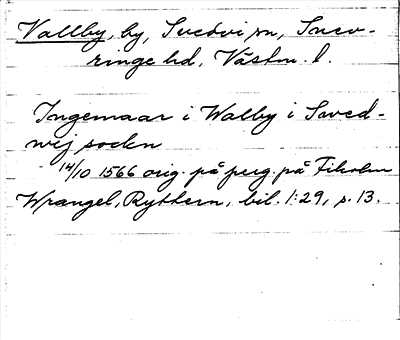 Vallby, by, Svedvi sn, Snev-
ringe hd, Västm. l.
Ingemaar i Walby i Sved-
wij sockn
14/10 1566 orig. på perg. på Fiholm
Wrangel, Ryttern, bil. 1:29, s. 13.